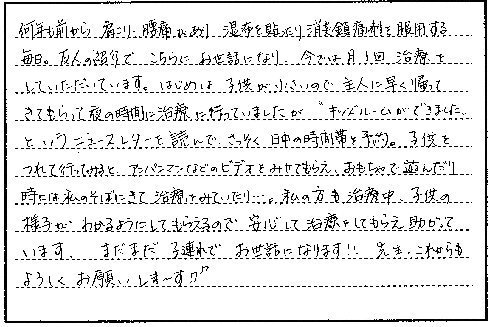 何年も前から肩こり、腰痛があり 湿布を貼ったり消炎鎮痛剤を服用する
毎日。友人の紹介で こちらに お世話になり 今では月1回 治療を
していただいています。はじめは 子供が小さいので主人に早く帰って
きてもらって夜の時間に治療に行っていましたが "キッズルームができました"
というニュースレターを読んで、さっそく 日中の時間帯を予約。子供を
つれて行ってみると、アンパンマンなどのビデオをみせてもらえ、おもちゃで遊んだり
時には私のそばにきて 治療をみていたり…。私の方も治療中、子供の
様子が わかるようにしてもらえるので 安心して治療をしてもらえ助かって
います。 まだまだ 子連れで お世話になります!! 先生、これからも
よろしく お願いしま〜す!!